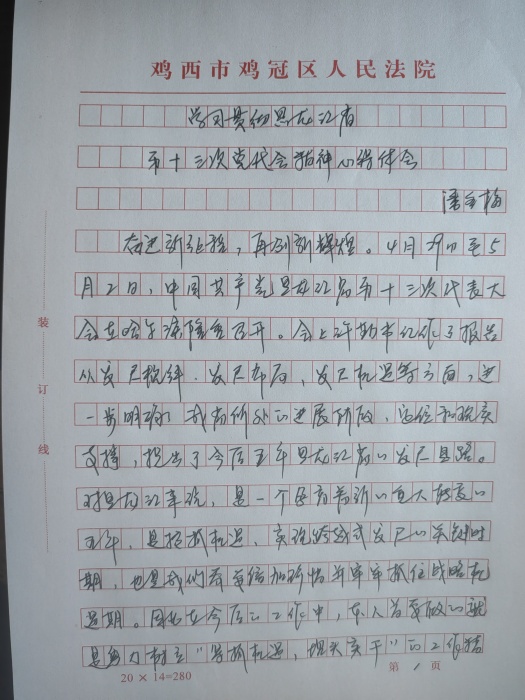 鸡西市鸡冠区人民法院
学习贯彻黑龙江省
第十三次党代会精神心得体会
潘金梅
奋进新征程，再创新辉煌。4月29日至5
月2日，中国共产党黑龙江省第十三次代表大
会在哈尔滨隆重召开。会上许勤书记作了报告
从发展操绎、发展布局，发展机遇等方面，进
一步明确了我省所处的进展阶段，定位和现实
支撑，提出了今后五年黑龙江省的发展思路。
对黑龙江来说，是一个孕育着新的重大转变的
五年，是抢抓机遇，实现跨越式发展的关键时
期，也是我们要更倍加珍惜并牢牢抓住战略机
遇期。因此在今后的工作中，本人首要做的就
是努力树立"抢抓机遇，埋头实干"的工作精
装
订
线
20×14=280
第1页